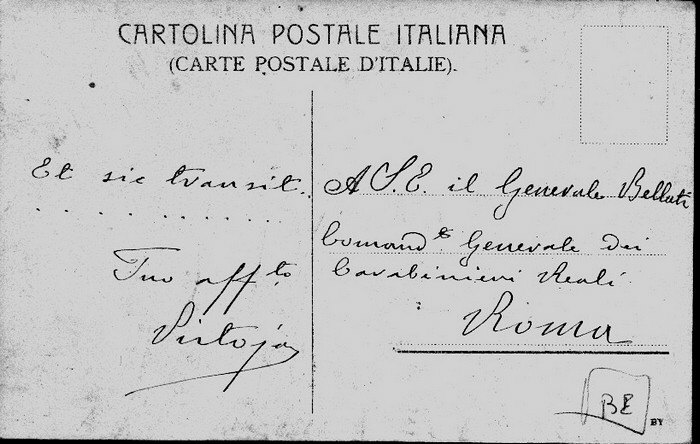 CARTOLINA POSTALE ITALIANA
(CARTE POSTALE D'ITALIE).
Et sic transit.
. . . . . . . . . . .
Tuo aff.to
Pistoja
A S. E. il Generale Bellati
Comand.te Generale dei
Carabinieri Reali
Roma
BE
BY